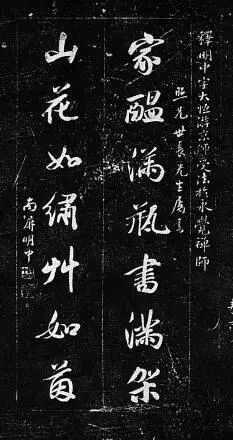 釋明中字大恒 師受法於永覺禪師
世長先生屬
家醞滿瓶書滿架
山花如繡艸如茵
南屏明中